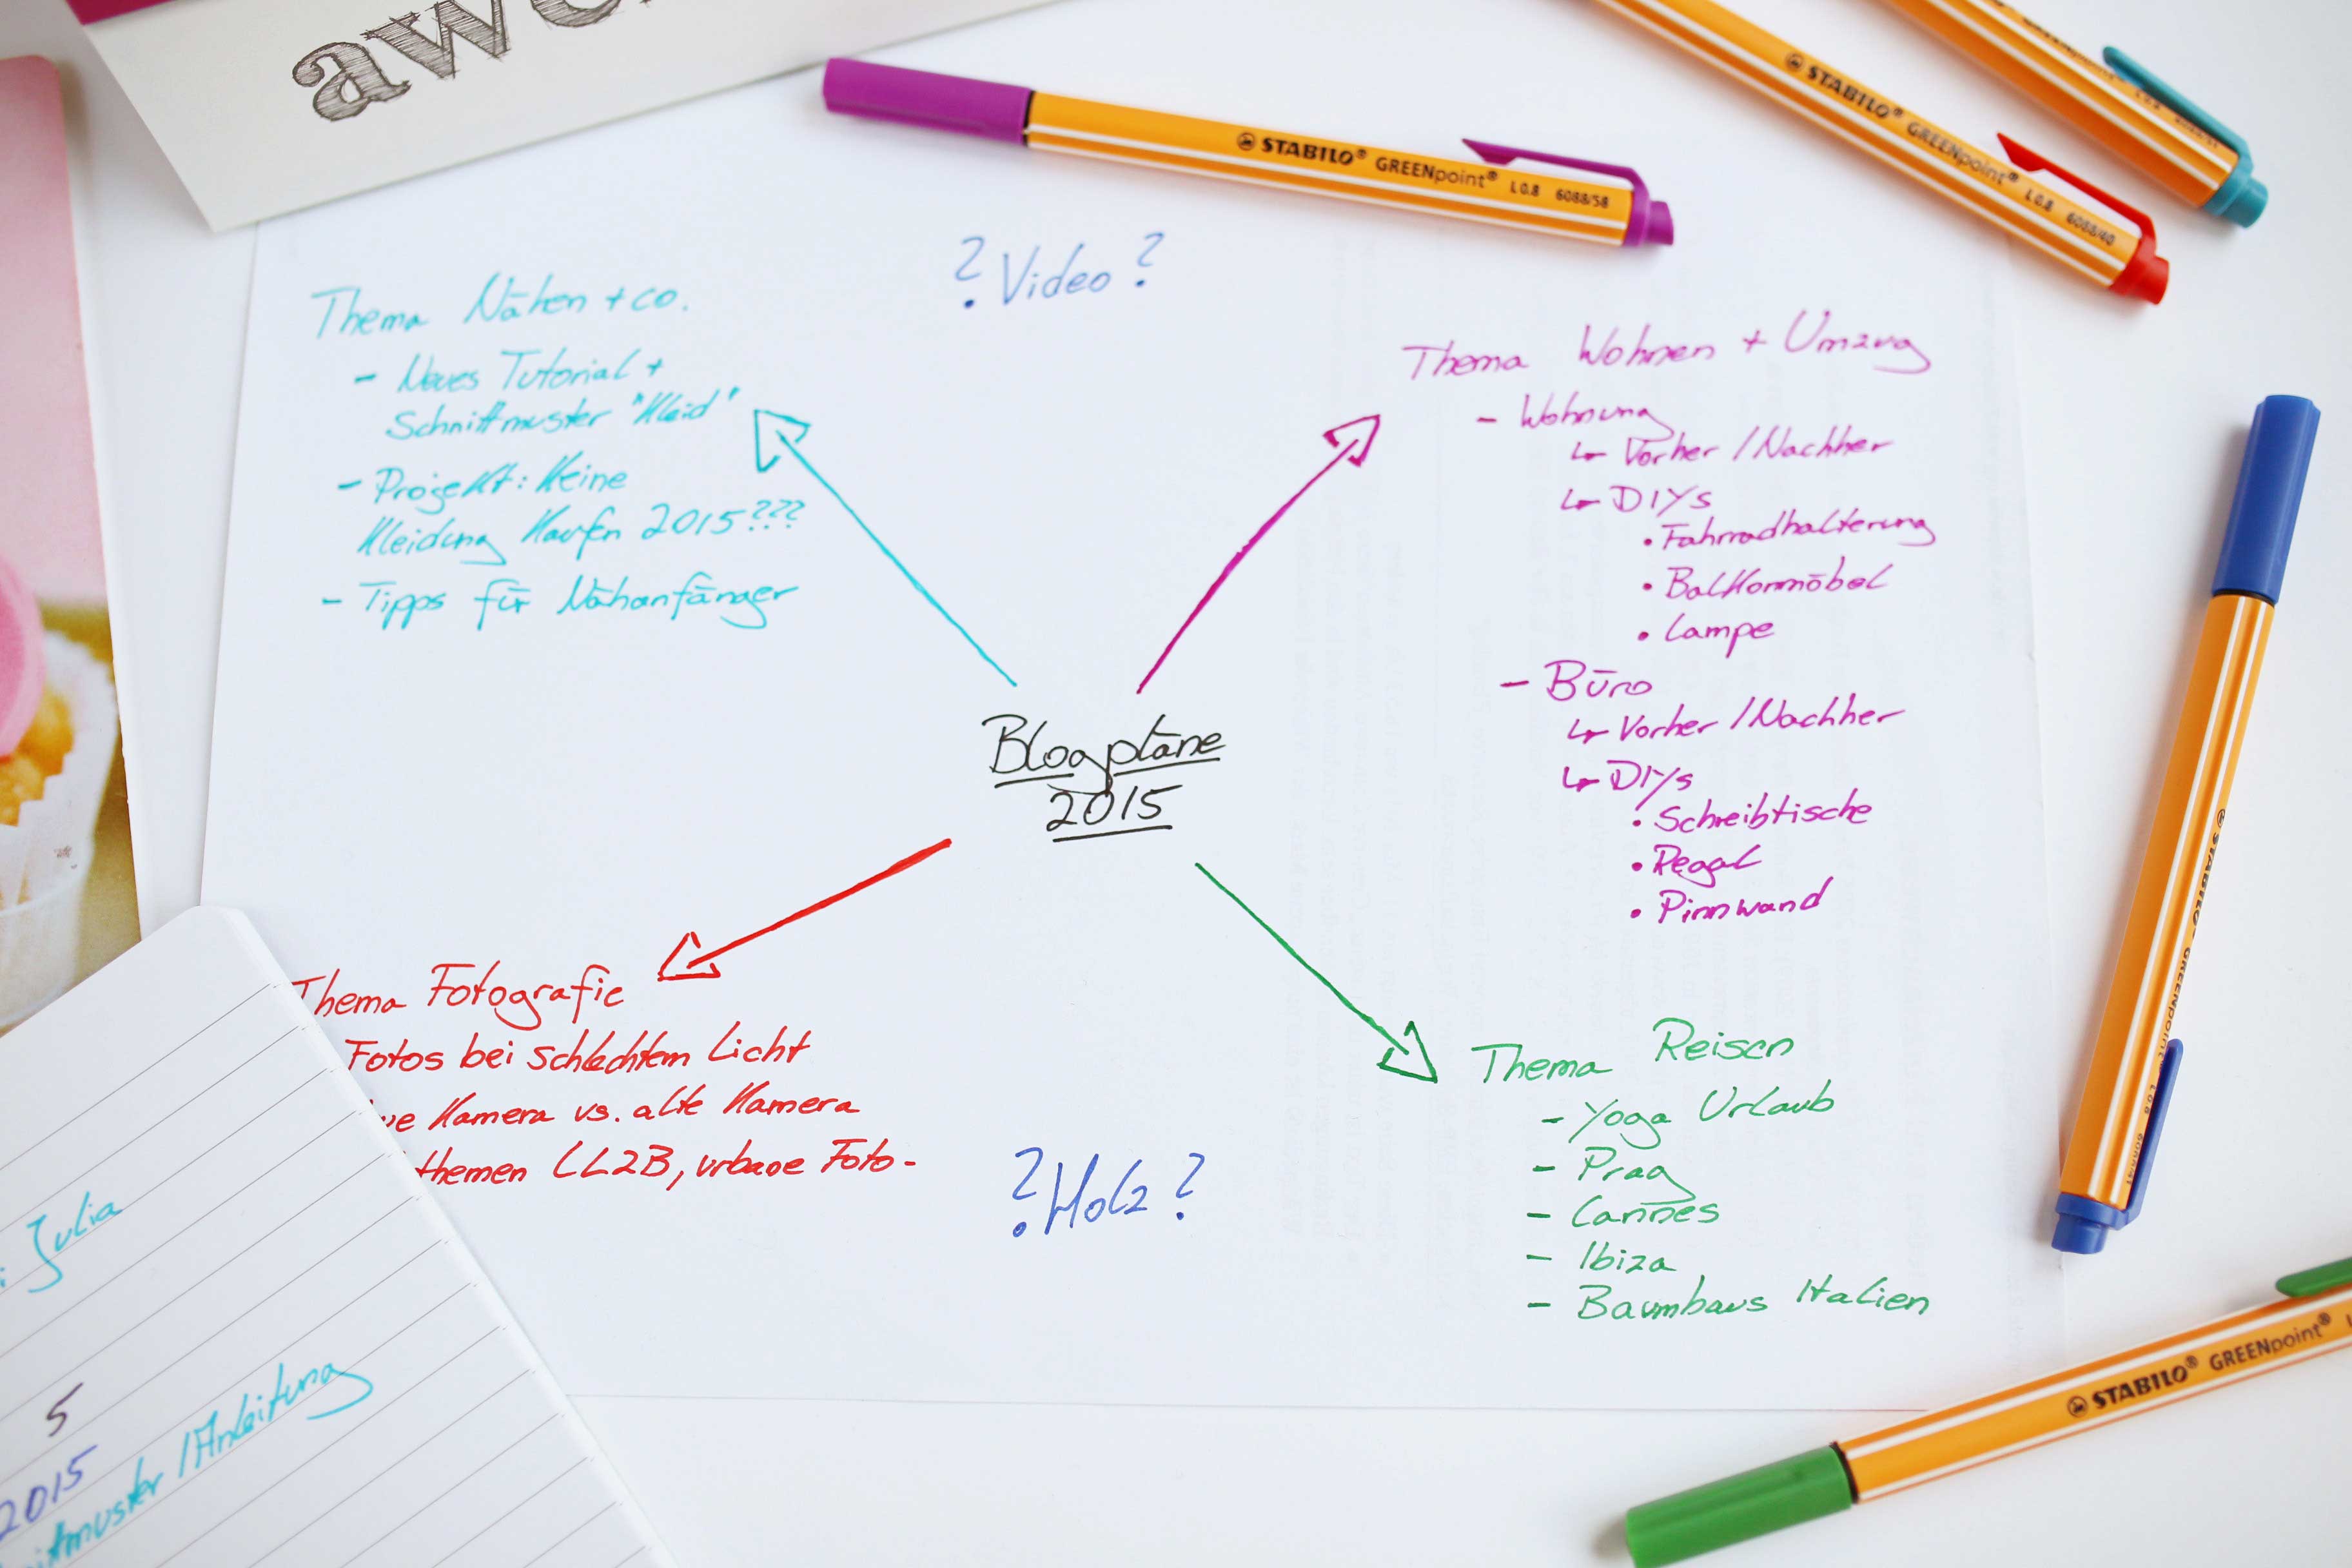 STABILO® GREENpoint® L 0.8 6088/58
STABILO® GREENpoint® L 0.8 6088/40
? Video ?
Thema Nähen + co.
- Neues Tutorial +
Schnittmuster "Kleid"
- Projekt: Keine
Kleidung Kaufen 2015???
- Tipps für Nähanfänger
Thema Wohnen + Umzug
- Wohnung
↳ Vorher / Nachher
↳ DIYs
• Fahrradhalterung
• Balkonmöbel
• Lampe
- Büro
↳ Vorher / Nachher
↳ DIYs
• Schreibtische
• Regal
• Pinnwand
Blogpläne
2015
Thema Fotografie
Fotos bei schlechtem Licht
Kamera vs. alte Kamera
themen LL2B, urbane Foto-
? Holz ?
Thema Reisen
- Yoga Urlaub
- Prag
- Cannes
- Ibiza
- Baumhaus Italien
Julia
5
2015
/Anleitung
STABILO® GREENpoint®